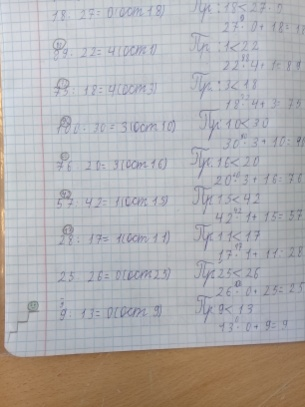 18 : 27 = 0 (ост 18) Пр: 18 < 27
27 · 0 + 18 = 18
89 : 22 = 4 (ост 1) Пр: 1 < 22
22 · 4 + 1 = 89
75 : 18 = 4 (ост 3) Пр: 3 < 18
18 · 4 + 3 = 75
100 : 30 = 3 (ост 10) Пр: 10 < 30
30 · 3 + 10 =
76 20 = 3 (ост 16) Пр: 16 < 20
20 · 3 + 16 = 76
57 42 = 1 (ост 15) Пр: 15 < 42
42 · 1 + 15 = 57
28 : 17 = 1 (ост 11) Пр: 11 < 17
17 · 1 + 11 = 28
25 26 = 0 (ост 25) Пр: 25 < 26
26 · 0 + 25 = 25
9 : 13 = 0 (ост 9) Пр: 9 < 13
13 · 0 + 9 = 9